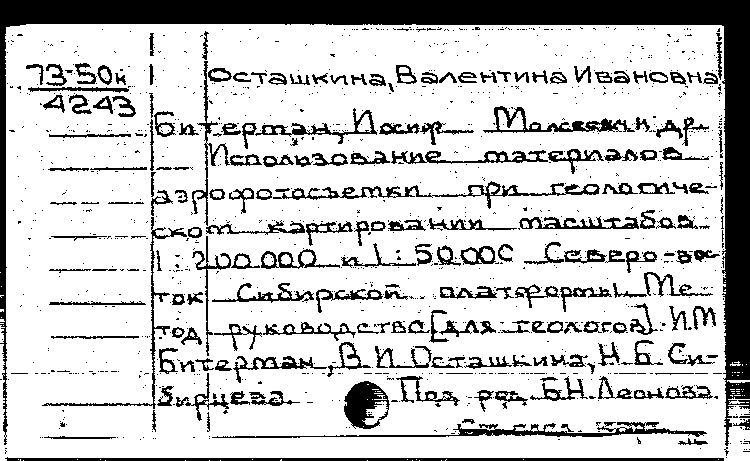 73-50к
4243
Осташкина, Валентина Ивановна
Битерман, Иосиф Моисеевич и др.
Использование материалов
аэрофотосъемки при геологиче-
ском картировании масштабов
1:200.000 и 1:50.000 Северо-вос-
ток Сибирской платформы. Ме-
тод. руководство [для геологов]. И.М.
Битерман, В.И. Осташкина, Н.Б. Си-
бирцева. Под ред. Б.Н. Леонова.